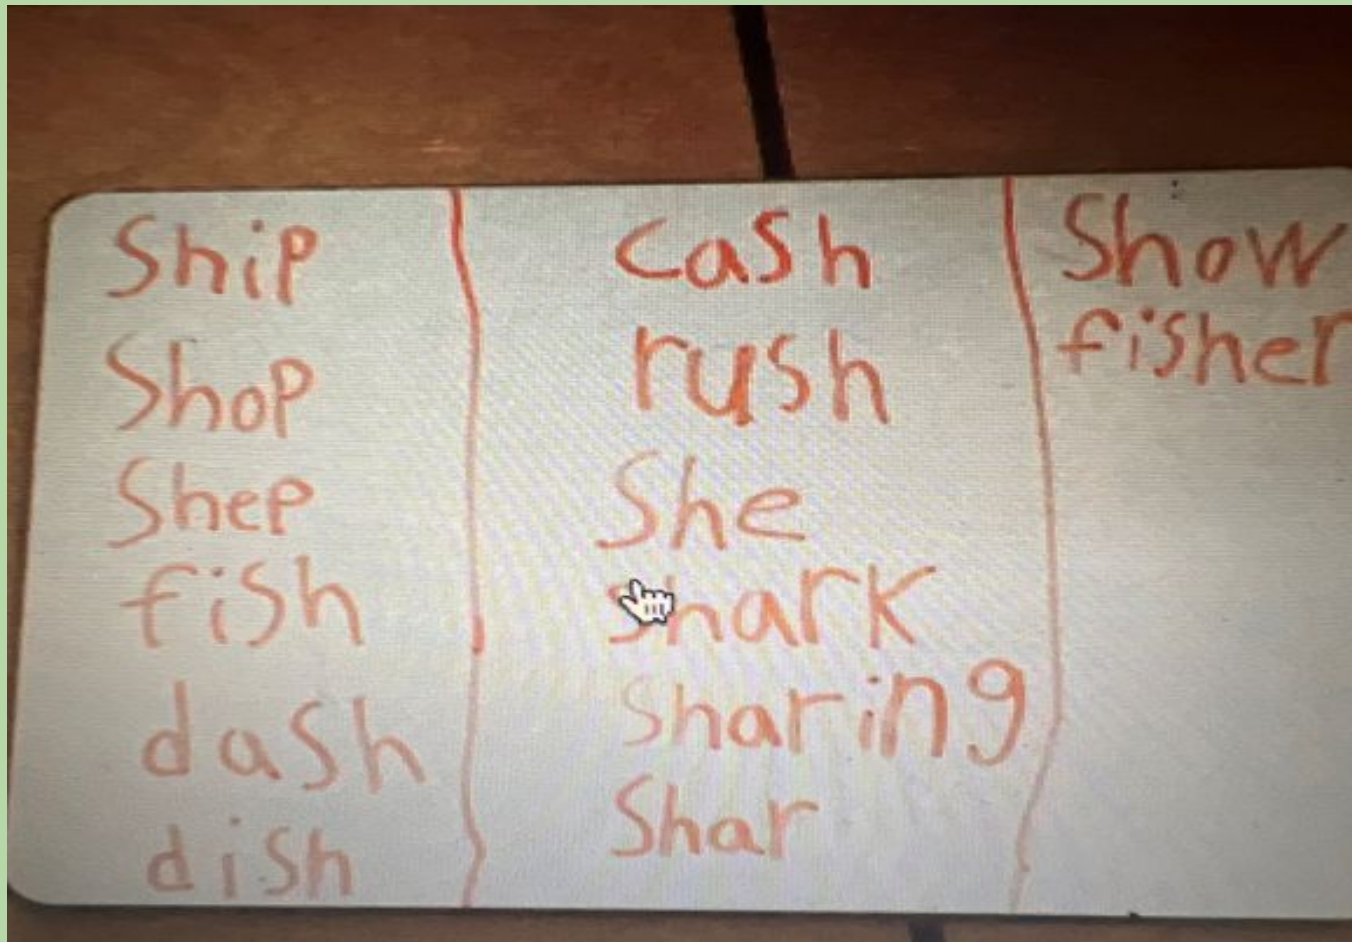 Ship
Shop
Shep
fish
dash
dish
cash
rush
She
shark
Sharing
Shar
Show
fisher